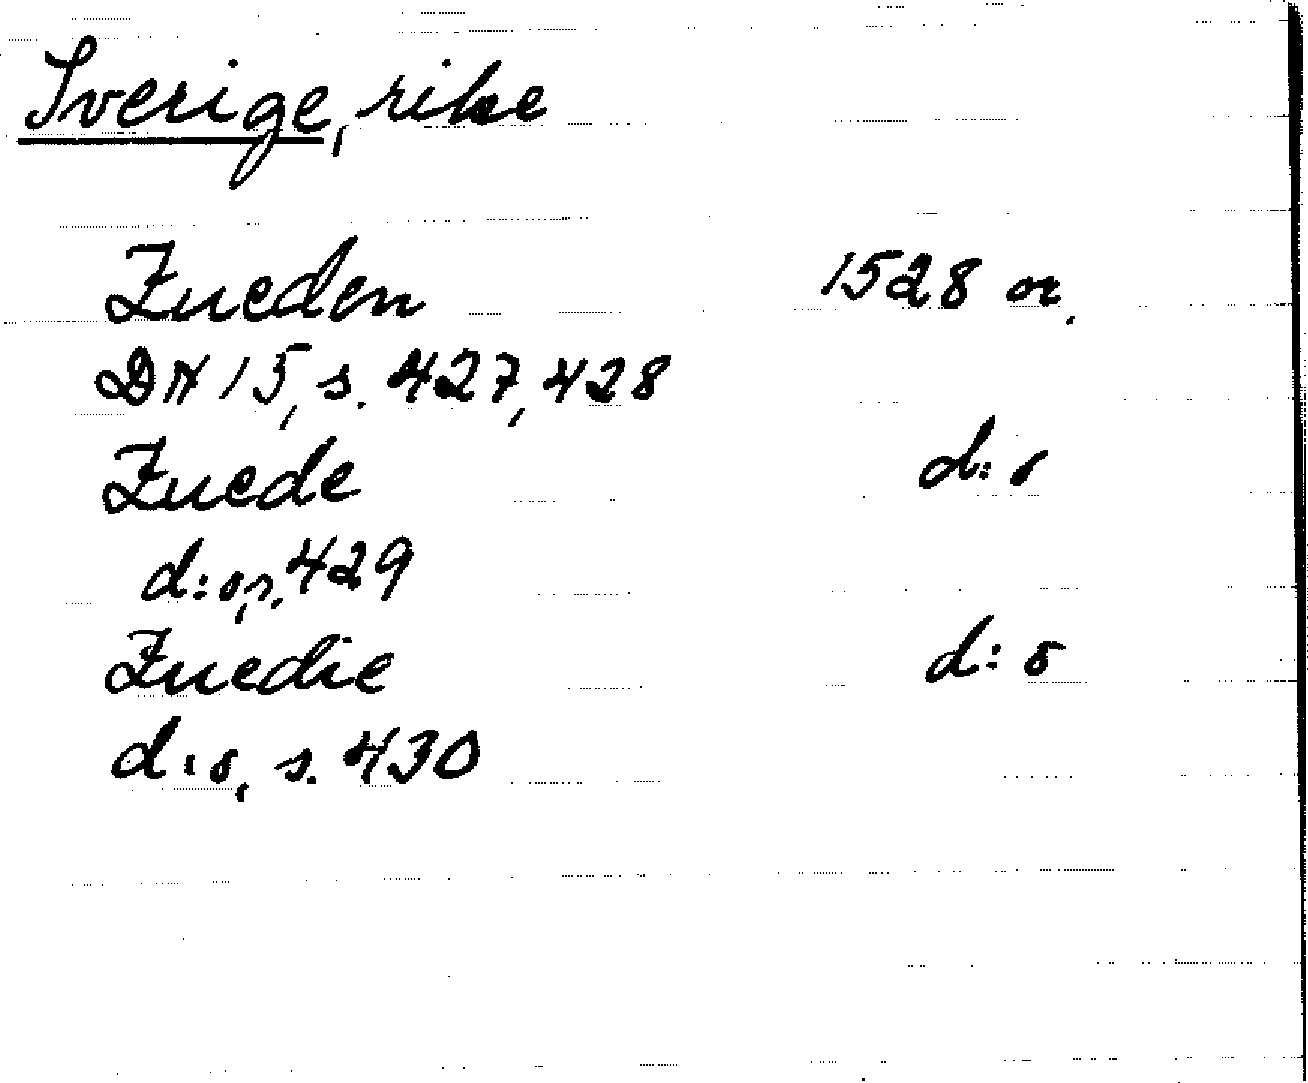 Sverige, rike
Zueden 1528 or.
DN 15, s. 427, 428
Zuede d:o
d:o, s. 429
Zuedie d:o
d:o, s. 430